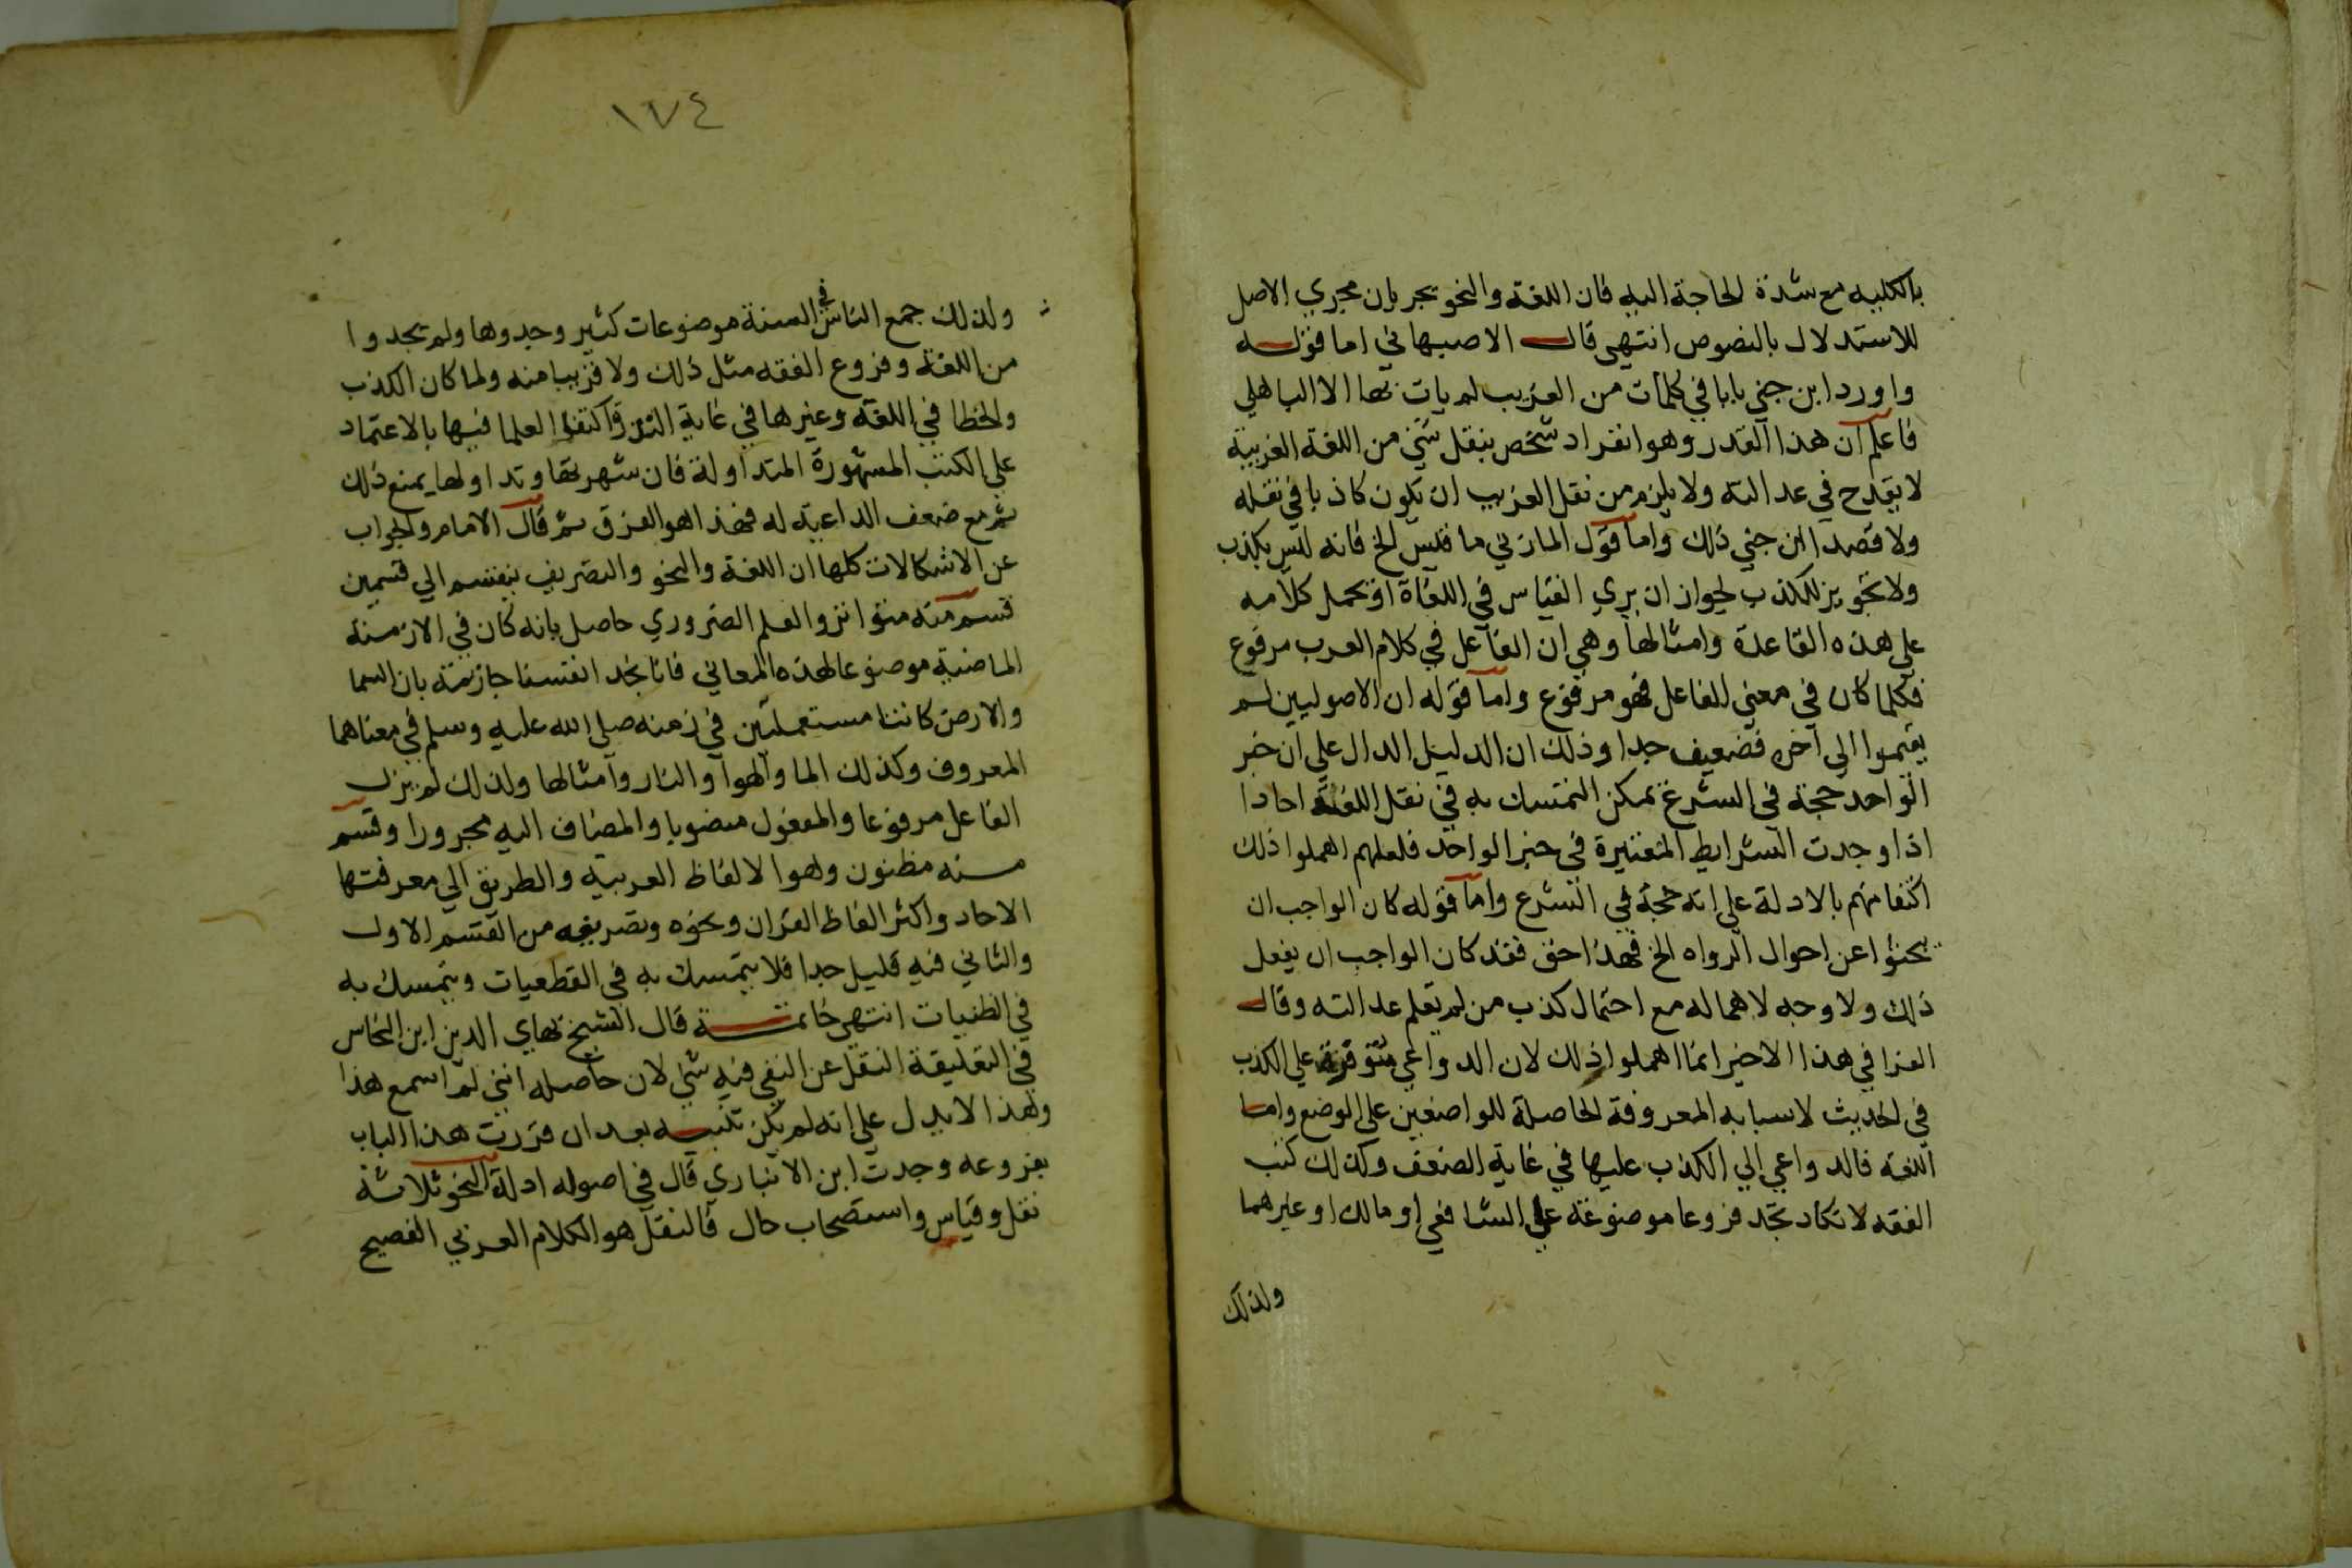 بالكليه مع شدة الحاجة اليه فان اللغة والنحو يجريان مجري الاصل
للاستدلال بالنصوص انتهى قال الاصبهاني اما قوله
واورد ابن جني بابا في كلمات من الغريب لم يات بها الا الباهلي
فاعلم ان هذا القدر وهو انفراد شخص بنقل شي من اللغة الغريبة
لا يقدح في عدالته ولا يلزم من نقل الغريب ان يكون كاذبا في نقله
ولا قصد ابن جني ذلك واما قول المازني ما قيس الخ فانه ليس بكذب
ولا تجويز للكذب لجواز ان يري القياس في اللغاة او يحمل كلامه
علي هذه القاعدة وامثالها وهي ان الفاعل في كلام العرب مرفوع
فكلما كان في معني الفاعل فهو مرفوع واما قوله ان الاصوليين لم
يقيموا الي آخره فضعيف جدا وذلك ان الدليل الدال علي ان خبر
الواحد حجة في الشرع يمكن التمسك به في نقل اللغة احادا
اذا وجدت الشرايط المعتبرة في خبر الواحد فلعلهم اهملوا ذلك
اكتفا منهم بالادلة علي انه حجة في الشرع واما قوله كان الواجب ان
يبحثوا عن احوال الرواه الخ فهذا حق فقد كان الواجب ان يفعل
ذلك ولا وجه لاهماله مع احتمال كذب من لم يعلم عدالته وقال
القرافي هذا الاخير انما اهملوا ذلك لان الدواعي متوفرة علي الكذب
في الحديث لاسبابه المعروفة الحاصلة للواضعين علي الوضع واما
اللغه فالدواعي الي الكذب عليها في غاية الضعف وكذلك كتب
الفقه لا تكاد تجد فروعا موضوعة علي الشافعي او مالك او غيرهما
ولذلك
١٧٤
ولذلك جمع الناس في السنة موضوعات كثير وجدوها ولم يجدوا
من اللغة وفروع الفقه مثل ذلك ولا قريبا منه ولما كان الكذب
والخطا في اللغة وغيرها في غاية اكتفي العلما فيها بالاعتماد
علي الكتب المشهورة المتداولة فان شهرتها وتداولها يمنع ذلك
ثم مع ضعف الداعية له فهذا هو الفرق ثم قال الامام والجواب
عن الاشكالات كلها ان اللغة والنحو والتصريف ينقسم الي قسمين
قسم منه متواتر والعلم الضروري حاصل بانه كان في الازمنة
الماضية موضوعا لهذه المعاني فانا نجد انفسنا جازمة بان السما
والارض كانتا مستعملتين في زمنه صلي الله عليه وسلم في معناهما
المعروف وكذلك الما والهوا والنار وامثالها ولذلك لم يزل
الفاعل مرفوعا والمفعول منصوبا والمضاف اليه مجرورا وقسم
منه مظنون وهو الالفاظ العربية والطريق الي معرفتها
الاحاد واكثر الفاظ القران ونحوه وتصريفه من القسم الاول
والثاني فيه قليل جدا فلا يتمسك به في القطعيات ويتمسك به
في الظنيات انتهى خاتمة قال الشيخ بهاي الدين ابن النحاس
في التعليقة النقل عن النفي فيه شي لان حاصله انني لم اسمع هذا
وهذا لا يدل علي انه لم يكن تنبيه بعد ان قررت هذا الباب
بفروعه وجدت ابن الانباري قال في اصوله ادلة النحو ثلاثة
نقل وقياس واستصحاب حال فالنقل هو الكلام العربي الفصيح